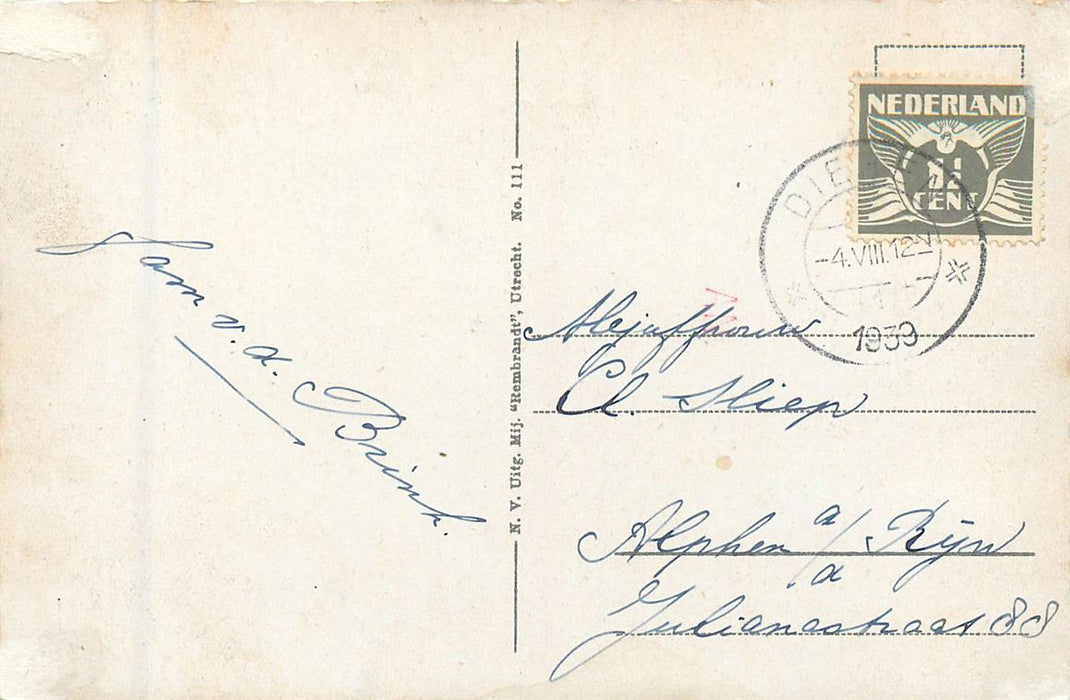 Fam v. d. Brink.
N. V. Uitg. Mij. "Rembrandt", Utrecht. No. 111
NEDERLAND
1½
CENT
-4.VIII.12
1939
Mejuffrouw
Cl. Sliep
Alphen a/d Rijn
Julianastraat 88